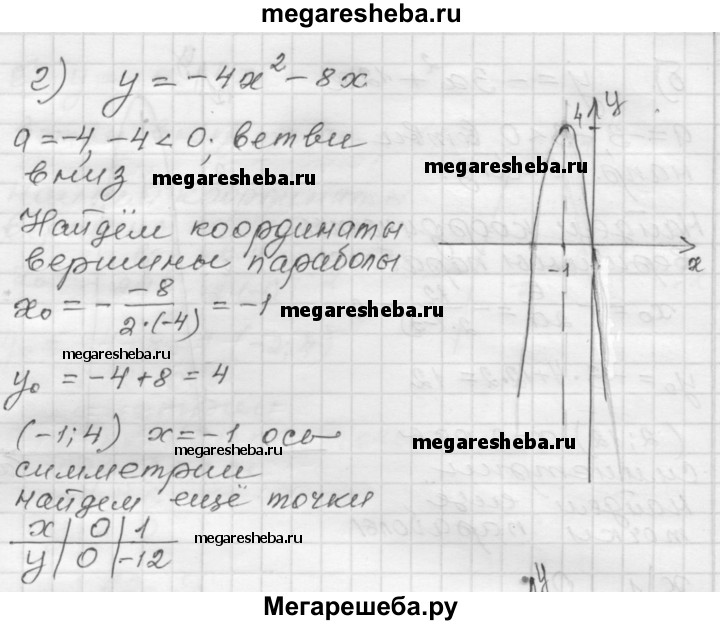 megaresheba.ru
г) y = -4x² - 8x
a = -4, -4 < 0; ветви
вниз megaresheba.ru
Найдём координаты
вершины параболы
x₀ = - -8 / 2·(-4) = -1 megaresheba.ru
megaresheba.ru
y₀ = -4 + 8 = 4
(-1; 4) x = -1 ось
симметрии
найдем ещё точки
x | 0 | 1
y | 0 | -12
megaresheba.ru
4 y
megaresheba.ru
-1 x
megaresheba.ru
y
Мегарешеба.ру